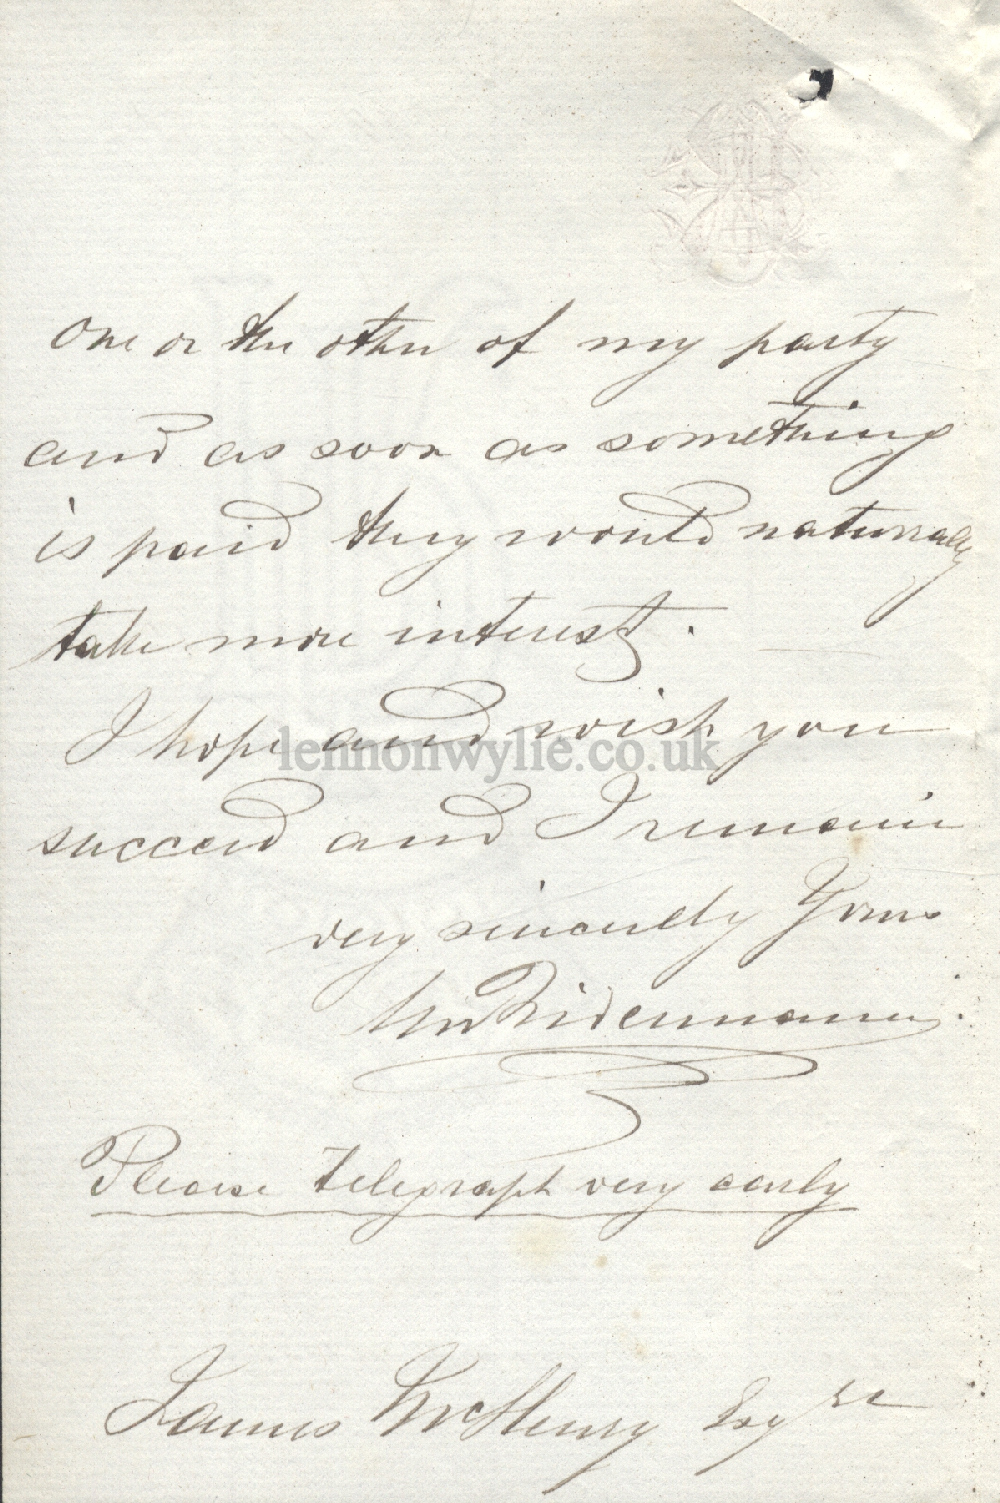 one or the other of my party
and as soon as something
is paid they would naturally
take more interest.
I hope and wish you
lennonwylie.co.uk
succeed and I remain
very sincerely Yours
Please Telegraph very early
James McHenry Esqre